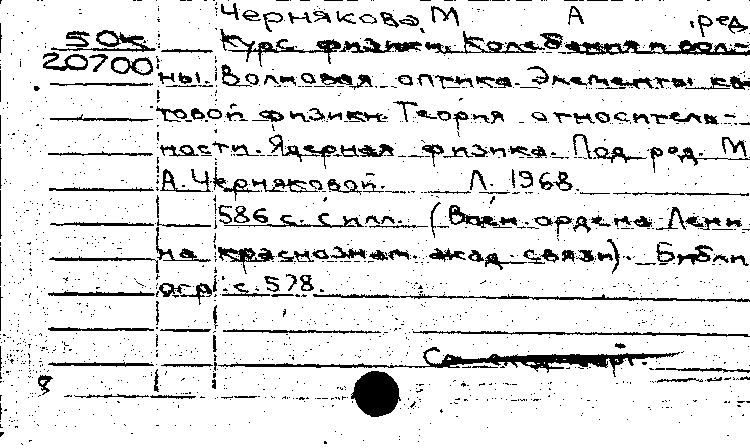 Чернякова, М А , ред
50К Курс физики. Колебания и вол-
20700 ны. Волновая оптика. Элементы ква
товой физики. Теория относитель-
ности. Ядерная физика. Под ред. М
А. Черняковой. Л. 1968.
586 с. с илл. (Воен. ордена Лени
на краснознам. акад. связи). Библи
огр: с. 578.